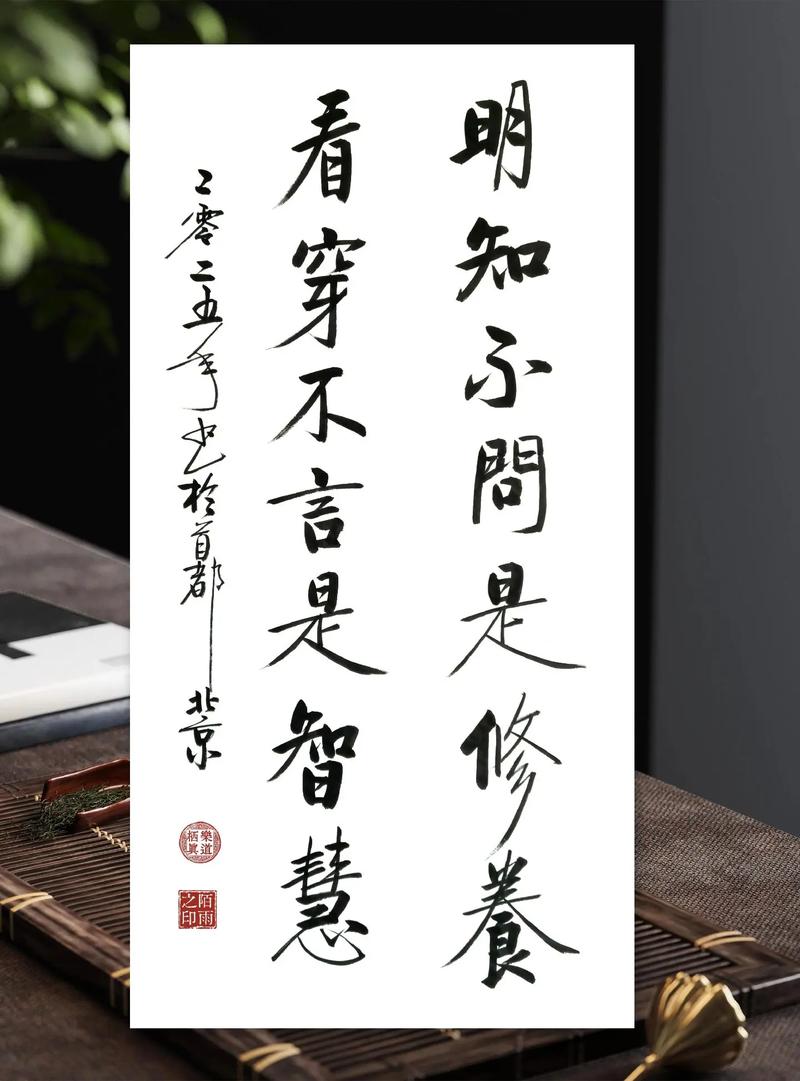 明知不問是修養
看穿不言是智慧
二零二五年书於首都北京
樂道栖真
陌雨之印